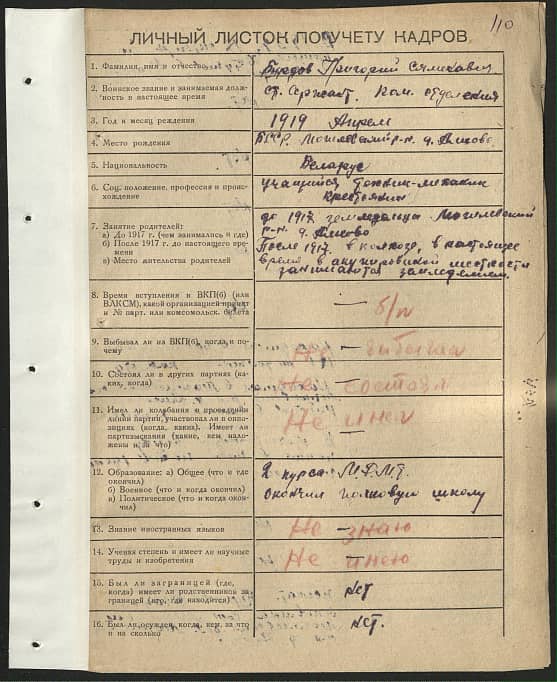 110
ЛИЧНЫЙ ЛИСТОК ПО УЧЕТУ КАДРОВ.
1. Фамилия, имя и отчество
Бурдов Григорий
2. Воинское звание и занимаемая долж-
ность в настоящее время
Ст. Сержант. Ком. отделения
3. Год и месяц рождения
1919 Апрель
4. Место рождения
БССР. Могилевский р-н. д.
5. Национальность
Беларус
6. Соц. положение, профессия и проис-
хождение
учащийся техник-механик
крестьянин
7. Занятие родителей:
а) До 1917 г. (чем занимались и где)
б) После 1917 до настоящего вре-
мени
в) Место жительства родителей
до 1917 земледельцы Могилевский
р-н. д.
После 1917. в колхозе, в настоящее
время в местности
занимаются земледелием.
8. Время вступления в ВКП(б) (или
ВЛКСМ), какой организацией принят
и № парт. или комсомольск. билета
— б/п
9. Выбывал ли из ВКП(б), когда и по-
чему
Не — выбывал
10. Состоял ли в других партиях (ка-
ких, когда)
Не — состоял
11. Имел ли колебания в проведении
линии партии, участвовал ли в оппо-
зициях (когда, каких). Имеет ли
партвзыскания (какие, кем нало-
жены и за что)
Не имел
—
12. Образование: а) Общее (что и где
окончил)
б) Военное (что и когда окончил)
в) Политическое (что и когда окон-
чил)
2 курса
окончил полковую школу
13. Знание иностранных языков
Не — знаю
14. Ученая степень и имеет ли научные
труды и изобретения
Не — имею
15. Был ли заграницей (где,
когда) имеет ли родственников за-
границей (кто, где находится)
нет
16. Был ли осужден, когда, кем, за что
и на сколько
нет.